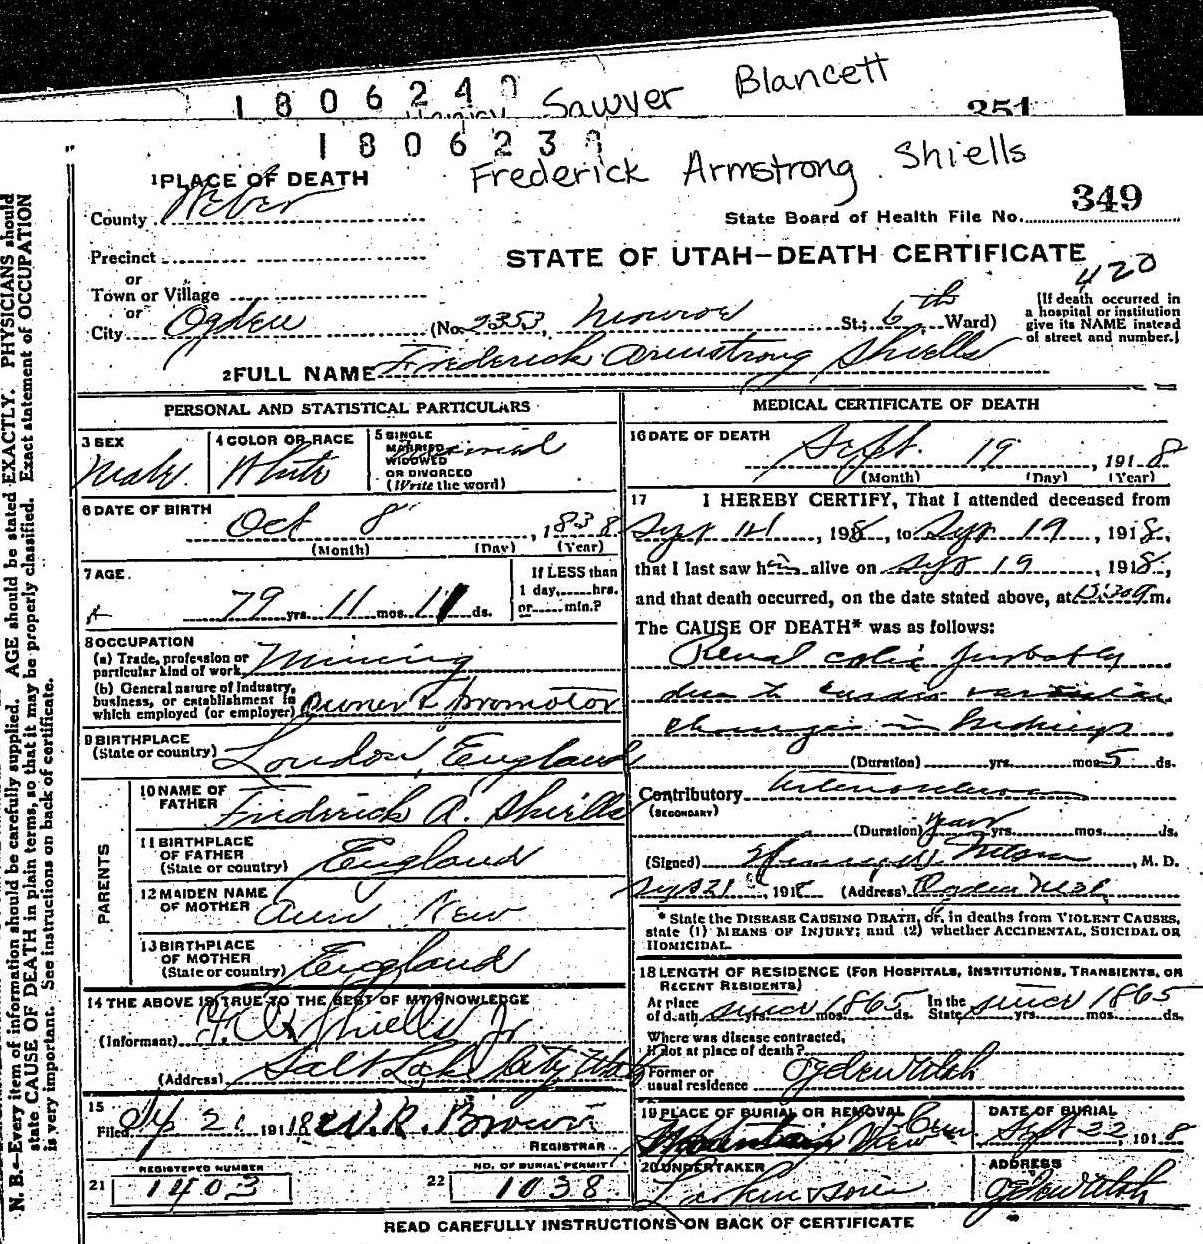 1806240
Sawyer Blancett
351
1806230
Frederick Armstrong Shiells
1 PLACE OF DEATH
349
County Weber
State Board of Health File No.
Precinct
STATE OF UTAH—DEATH CERTIFICATE
or
420
Town or Village
or
City Ogden (No. 2353, Monroe St.; 6th Ward)
[If death occurred in a hospital or institution give its NAME instead of street and number.]
2 FULL NAME Frederick Armstrong Shiells
PERSONAL AND STATISTICAL PARTICULARS
3 SEX
Male
4 COLOR OR RACE
White
5 SINGLE
MARRIED
WIDOWED
OR DIVORCED
(Write the word)
6 DATE OF BIRTH
Oct 8, 1838
(Month) (Day) (Year)
7 AGE
79 yrs. 11 mos. 11 ds.
If LESS than
1 day, hrs.
or min.?
8 OCCUPATION
(a) Trade, profession or
particular kind of work Mining
(b) General nature of Industry,
business, or establishment in
which employed (or employer) Owner & Promotor
9 BIRTHPLACE
(State or country) London, England
PARENTS
10 NAME OF
FATHER Frederick A. Shiells
11 BIRTHPLACE
OF FATHER
(State or country) England
12 MAIDEN NAME
OF MOTHER Ann New
13 BIRTHPLACE
OF MOTHER
(State or country) England
14 THE ABOVE IS TRUE TO THE BEST OF MY KNOWLEDGE
(Informant) F. A. Shiells Jr
(Address) Salt Lake City Utah
15
Filed Sep 21 1918 W. R. Brown
REGISTRAR
REGISTERED NUMBER
21 1403
NO. OF BURIAL PERMIT
22 1038
MEDICAL CERTIFICATE OF DEATH
16 DATE OF DEATH
Sept. 19, 1918
(Month) (Day) (Year)
17 I HEREBY CERTIFY, That I attended deceased from
Sept 14, 1918, to Sept 19, 1918,
that I last saw him alive on Sept 19, 1918,
and that death occurred, on the date stated above, at m.
The CAUSE OF DEATH* was as follows:
Renal colic probably
due to
changes in kidneys
(Duration) yrs. mos. 5 ds.
Contributory Arteriosclerosis
(SECONDARY)
(Duration) years yrs. mos. ds.
(Signed) Nelson, M. D.
Sept 21 1918 (Address) Ogden Utah
* State the DISEASE CAUSING DEATH, or, in deaths from VIOLENT CAUSES,
state (1) MEANS OF INJURY; and (2) whether ACCIDENTAL, SUICIDAL OR
HOMICIDAL.
18 LENGTH OF RESIDENCE (FOR HOSPITALS, INSTITUTIONS, TRANSIENTS, OR
RECENT RESIDENTS)
At place of death since yrs. 1865 mos. ds. In the State since yrs. 1865 mos. ds.
Where was disease contracted,
if not at place of death?
Former or
usual residence Ogden Utah
19 PLACE OF BURIAL OR REMOVAL
Mountain View Cem.
DATE OF BURIAL
Sept 22, 1918
20 UNDERTAKER
Larkin & Sons
ADDRESS
Ogden Utah
READ CAREFULLY INSTRUCTIONS ON BACK OF CERTIFICATE
N. B.—Every item of information should be carefully supplied. AGE should be stated EXACTLY. PHYSICIANS should
state CAUSE OF DEATH in plain terms, so that it may be properly classified. Exact statement of OCCUPATION
is very important. See instructions on back of certificate.